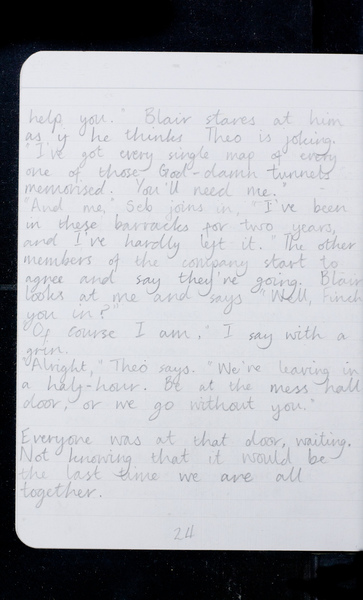 help you." Blair stares at him
as if he thinks Theo is joking.
"I've got every single map of every
one of those God-damn tunnels
memorised. You'll need me."
"And me," Seb joins in, "I've been
in these barracks for two years,
and I've hardly left it." The other
members of the company start to
agree and say they're going. Blair
looks at me and says "Well, Finch
you in?"
"Of course I am," I say with a
grin.
"Alright," Theo says. "We're leaving in
a half-hour. Be at the mess hall
door, or we go without you."
Everyone was at that door, waiting.
Not knowing that it would be
the last time we are all
together.
24